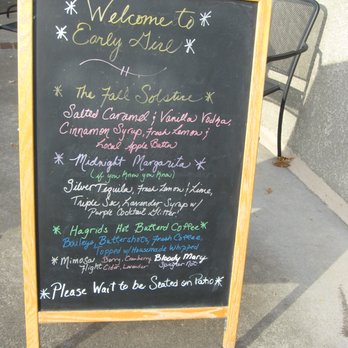 Welcome to
Early Girl
The Fall Solstice
Salted Caramel & Vanilla Vodka,
Cinnamon Syrup, Fresh Lemon &
Local Apple Butta
Midnight Margarita
(if you know you know)
Silver Tequila, Fresh Lemon & Lime,
Triple Sec, Lavender Syrup w/
Purple Cocktail Glitter!
Hagrids Hot Butterd Coffee
Baileys, Buttershots, Fresh Coffee,
Topped w/Housemade Whipped
Mimosa Berry, Cranberry, Bloody Mary
Flight Cider, Lavender
Please Wait to be Seated on Patio